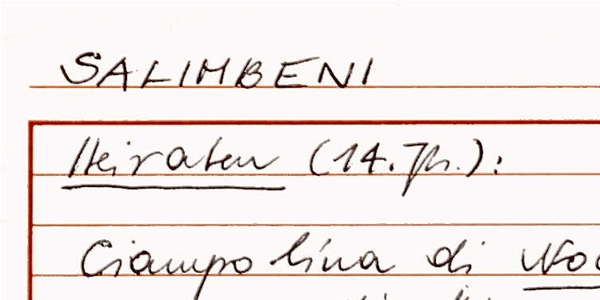 SALIMBENI
Heiraten (14. Jh.):
Ciampolina di